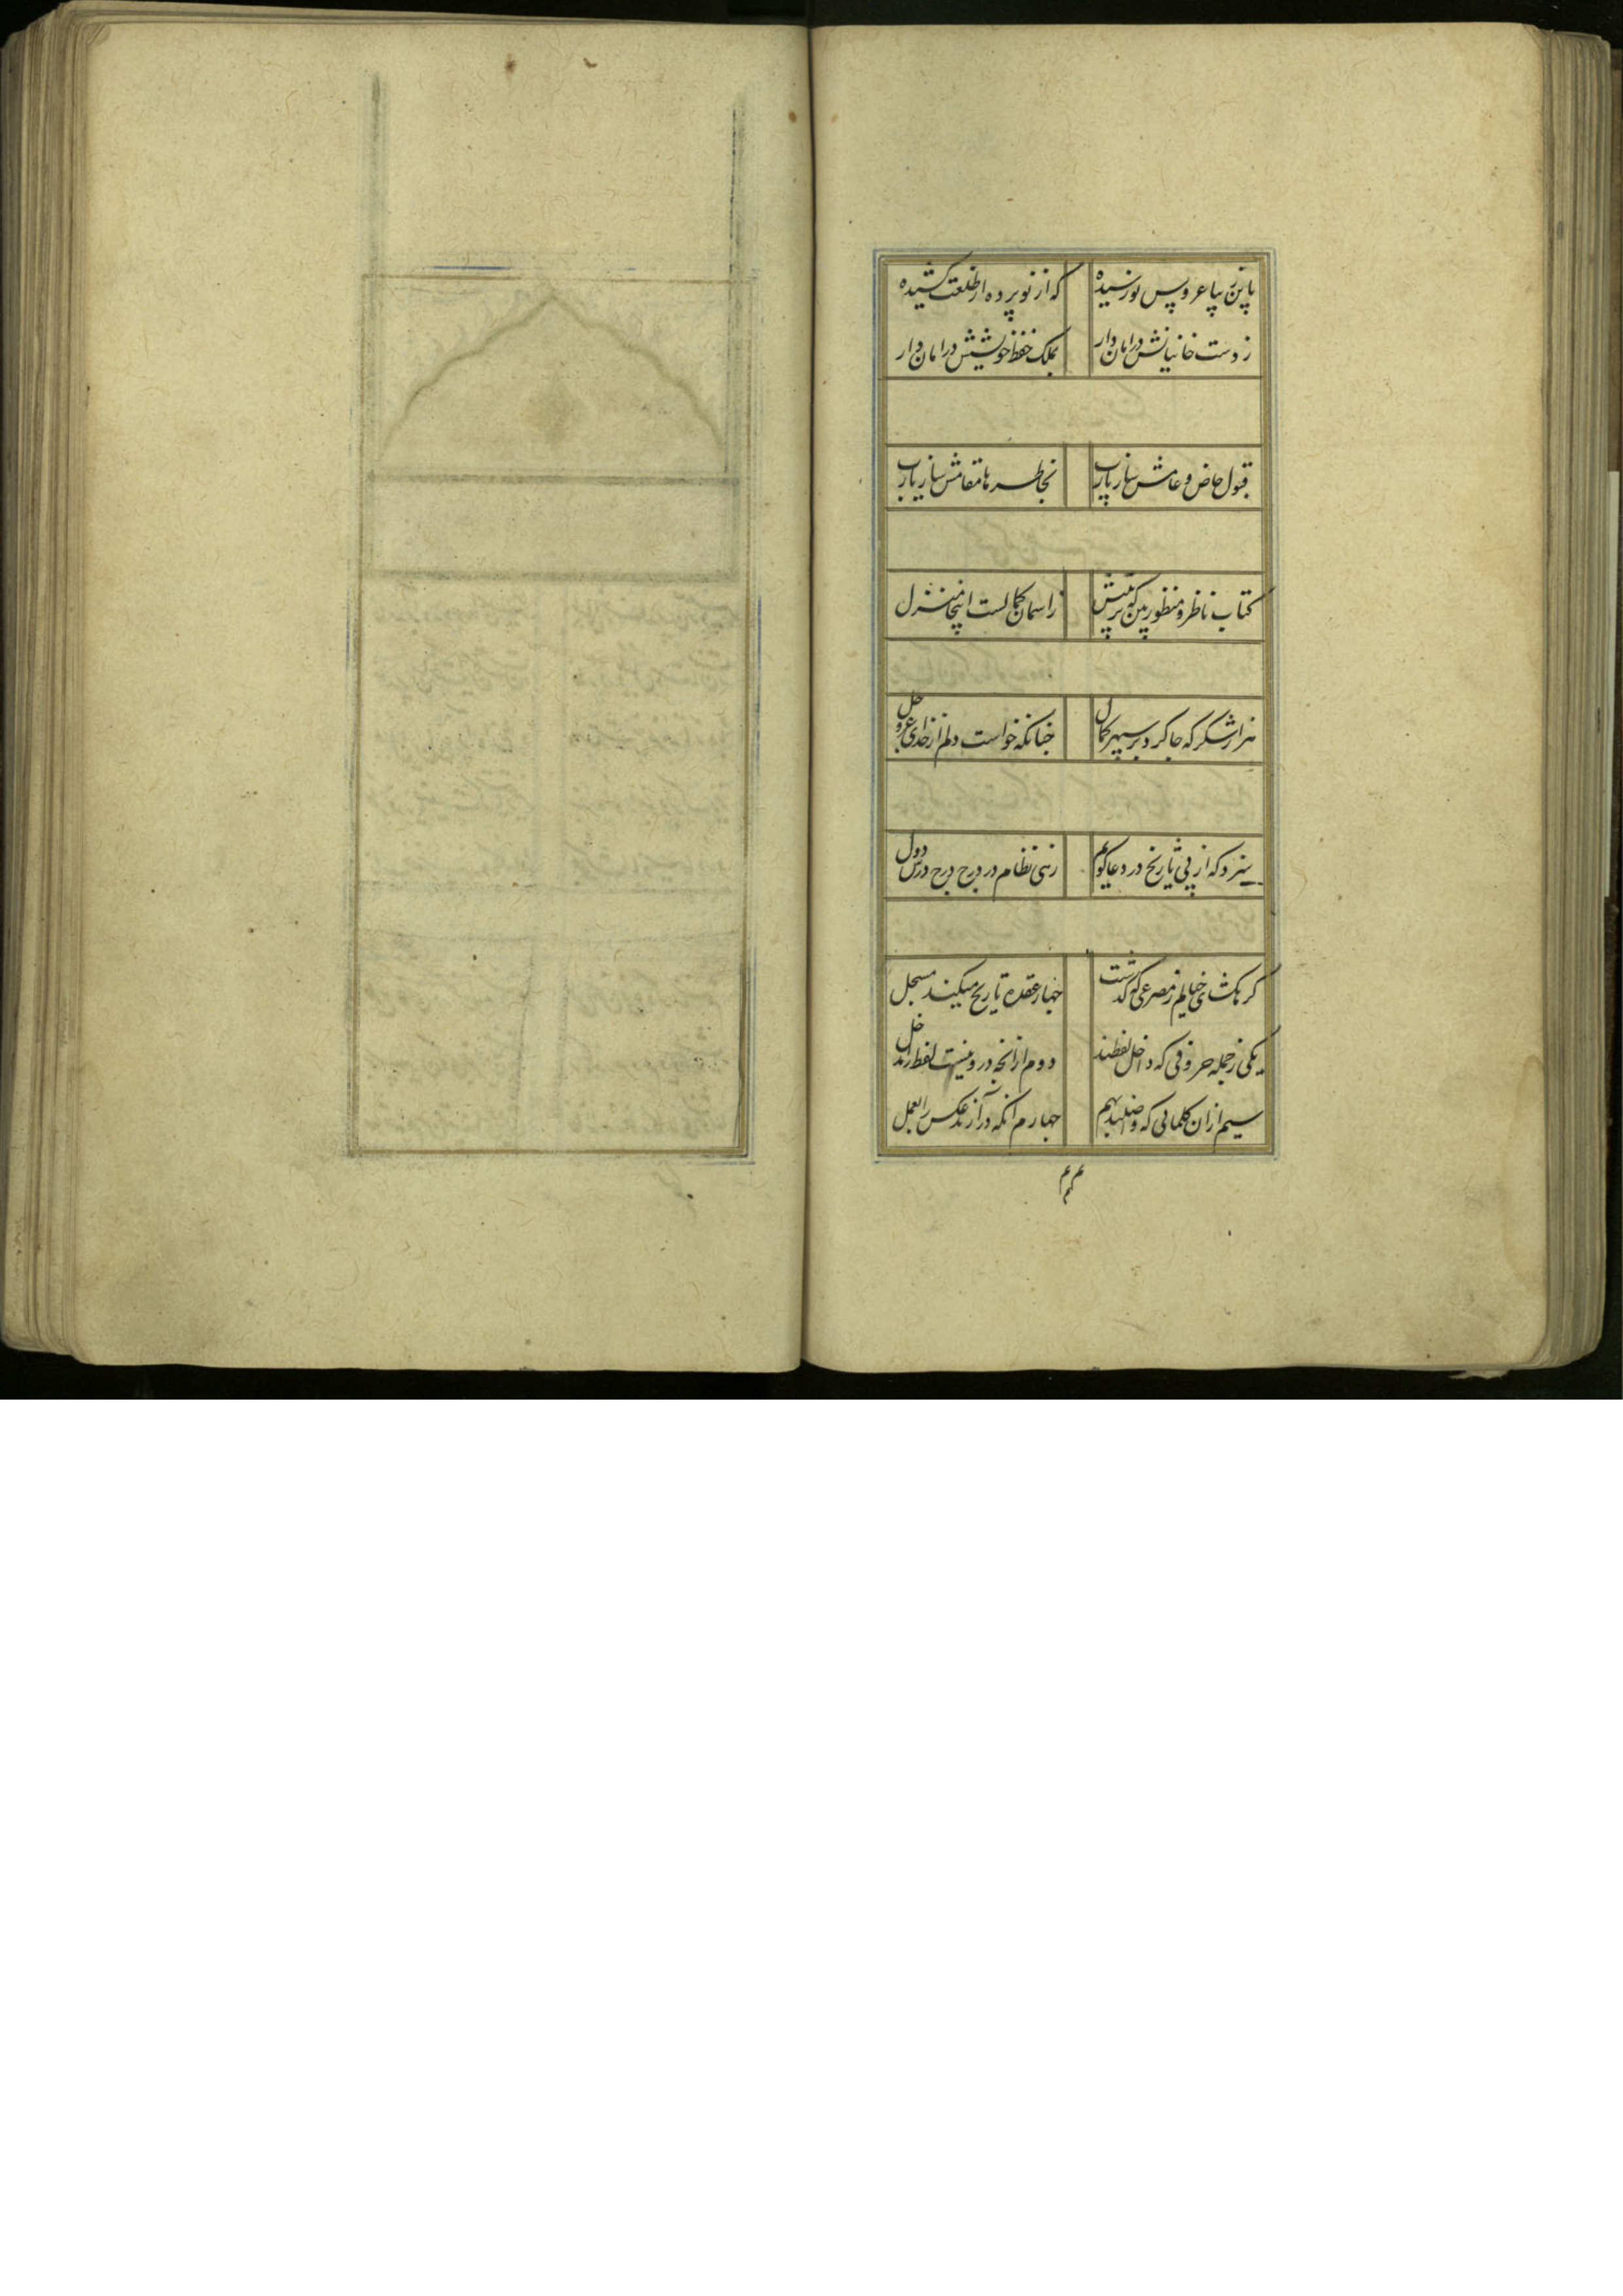 باین زیبا عروس نورسیده که از نو پرده از طلعت کشیده
ز دست خانیانش در امان دار بملک حفظ خویشش در امان دار
قبول خاص و عامش ساز یارب بخاطرها مقامش ساز یارب
کتاب ناظر و منظور بین که بر پیش ز اسمان کمالست اینچا منزل
هزار شکر که جا کرد بر سپهر کمال چنانکه خواست دلم از خدای عز و جل
سزد که از پی تاریخ در دعا گویم زهی نظام در درج درج درس دول
کر بکشای خیالم ز مصرعی که کذشت چهار عقده تاریخ میکند مسجل
یکی ز جمله حروفی که داخل نقطند دوم از انچه درو نیست نقطه را مدخل
سیم از ان کلماتی که واصلند بهم چهارم آنکه در آرند عکس العمل
م م م